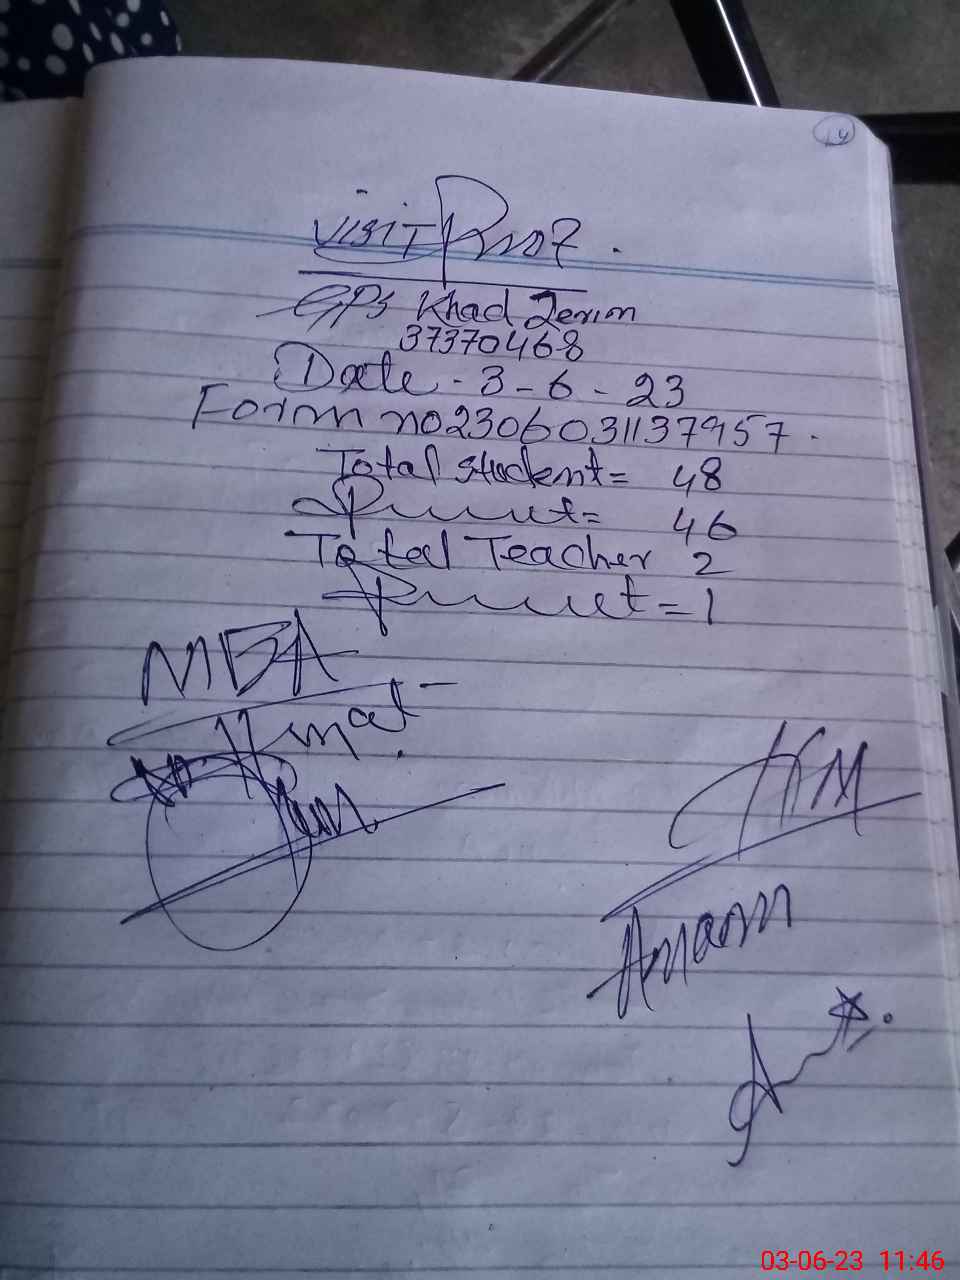 14
Visit Proof.
GPS Khad Zerim
37370468
Date - 3-6-23
Form no 2306031137957.
Total student = 48
Present = 46
Total Teacher 2
Present = 1
MEA
HM
Amann
03-06-23 11:46